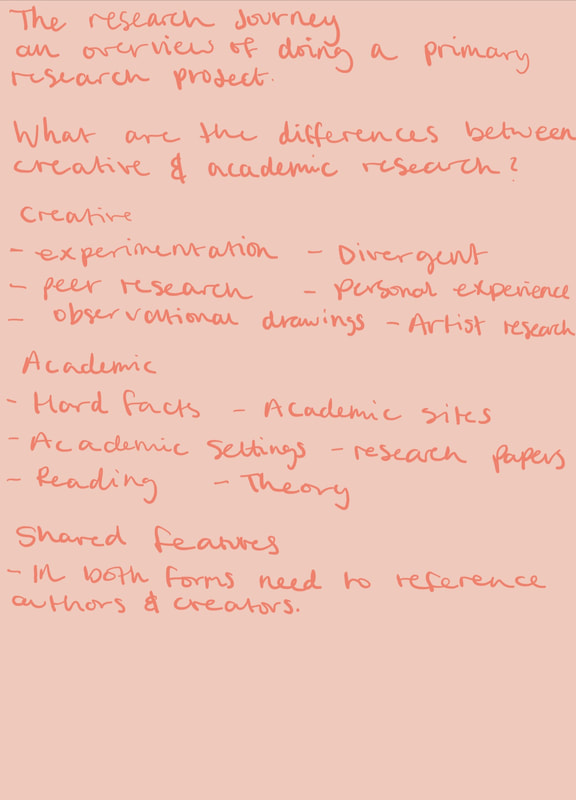 The research Journey
an overview of doing a primary
research project.
What are the differences between
creative & academic research?
Creative
- experimentation - Divergent
- peer research - Personal experience
- observational drawings - Artist research
Academic
- Hard facts - Academic sites
- Academic settings - research papers
- Reading - Theory
Shared features
- In both forms need to reference
authors & creators.